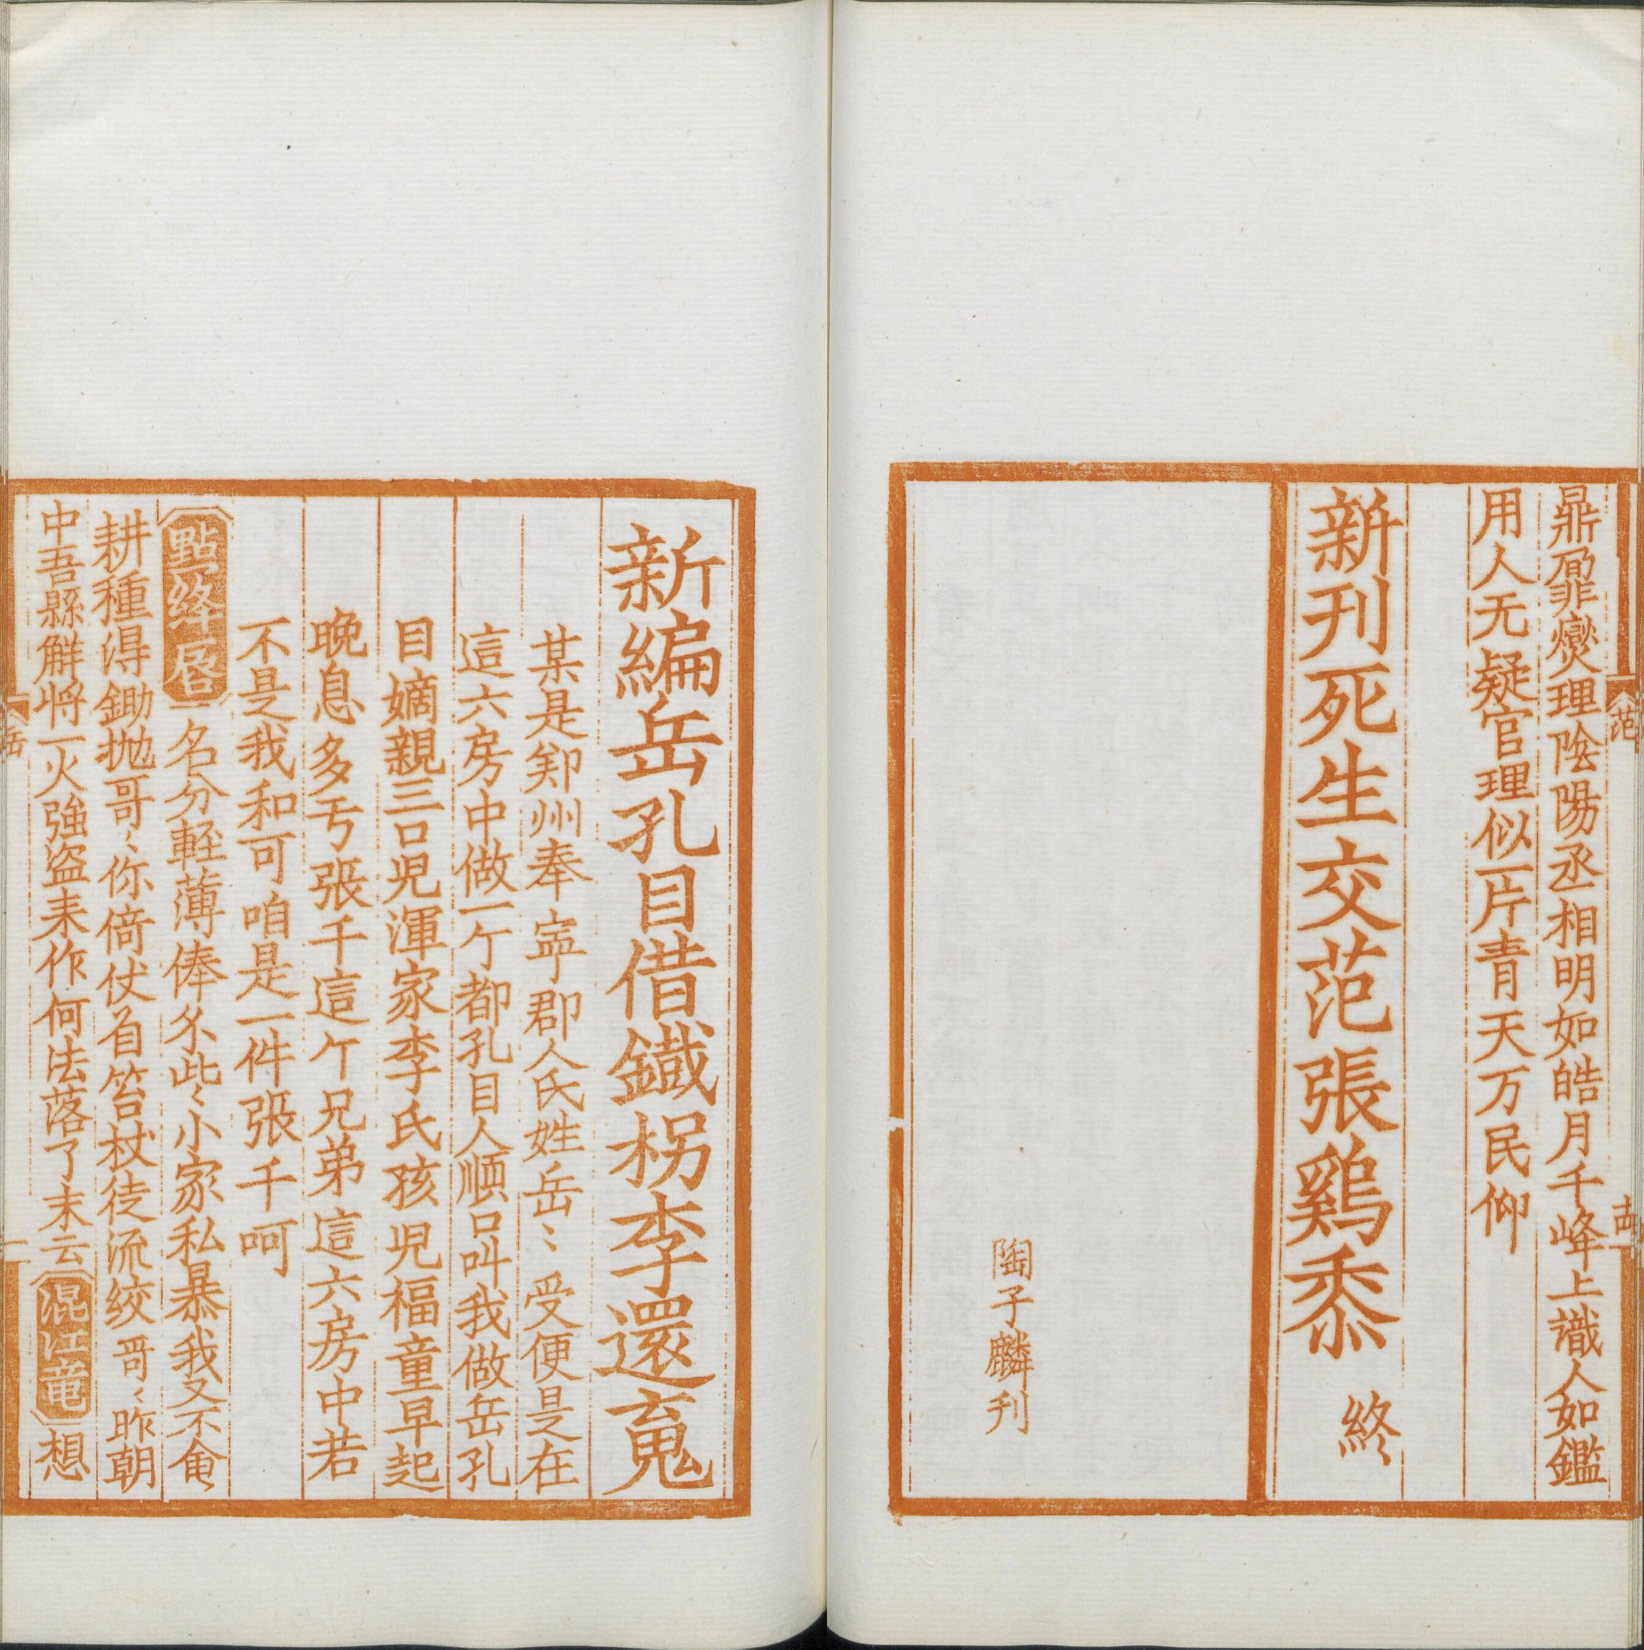 鼎鼐燮理陰陽丞相明如皓月千峰上識人如鑑
用人无疑官理似一片青天万民仰
新刊死生交范張鷄黍　終
陶子麟刊
范
新編岳孔目借鐵拐李還魂
某是郑州奉寜郡人氏姓岳〻受便是在
這六房中做一个都孔目人順口叫我做岳孔
目嫡親三口児渾家李氏孩児福童早起
晚息多亏張千這个兄弟這六房中若
不是我和可咱是一件張千呵
點絳唇 名分輊薄俸 些〻小家私暴我又不
耕種得鋤抛哥〻你倚仗着笞杖徒流絞哥〻昨朝
中吾縣解将一火強盗来作何法落了末云 混江竜 想
岳
一